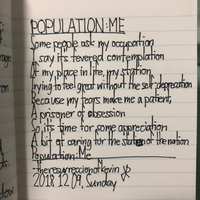 POPULATION: ME
Some people ask my occupation
I say it's fevered contemplation
Of my place in life, my station
Trying to feel great without the self-deprecation
Because my fears make me a patient,
A prisoner of obsession
So it's time for some appreciation
A bit of caring for the state of the nation
Population: Me
Theresurrectionofkevin
2018 12 09, Sunday